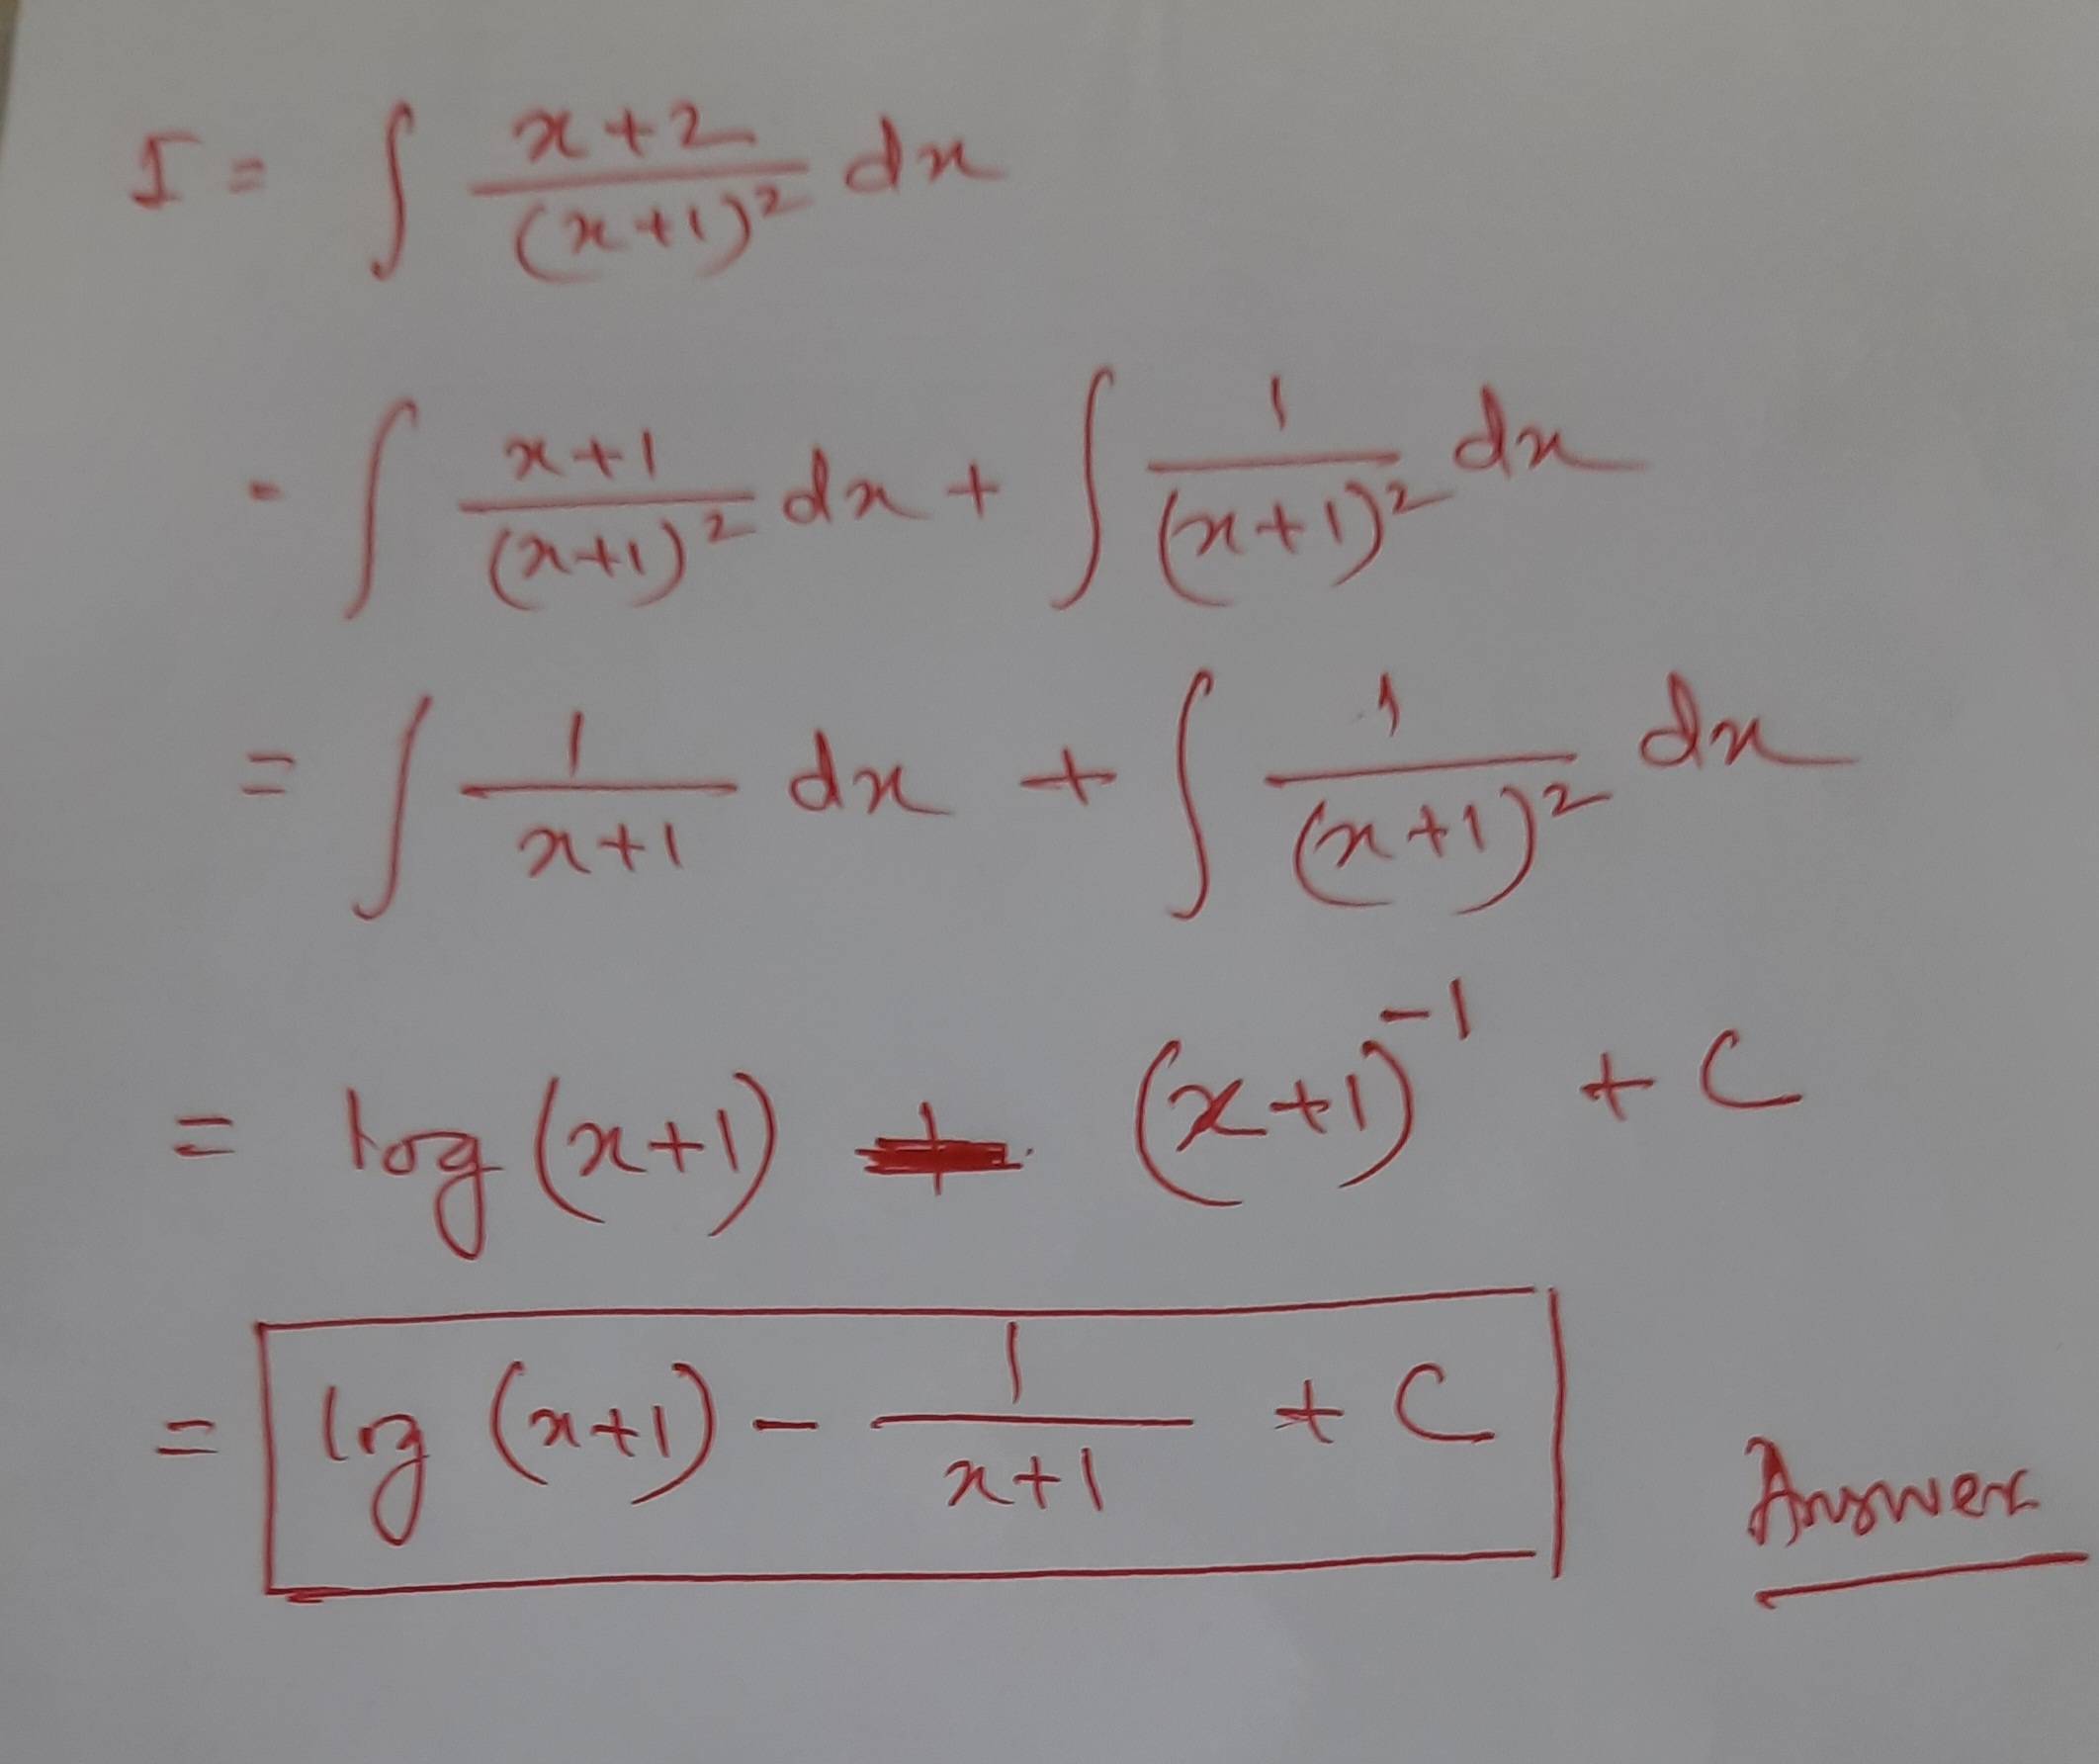 I = ∫ x+2/(x+1)² dx
- ∫ x+1/(x+1)² dx + ∫ 1/(x+1)² dx
= ∫ 1/x+1 dx + ∫ 1/(x+1)² dx
= log (x+1) - (x+1)⁻¹ + C
= log (x+1) - 1/x+1 + C Answer